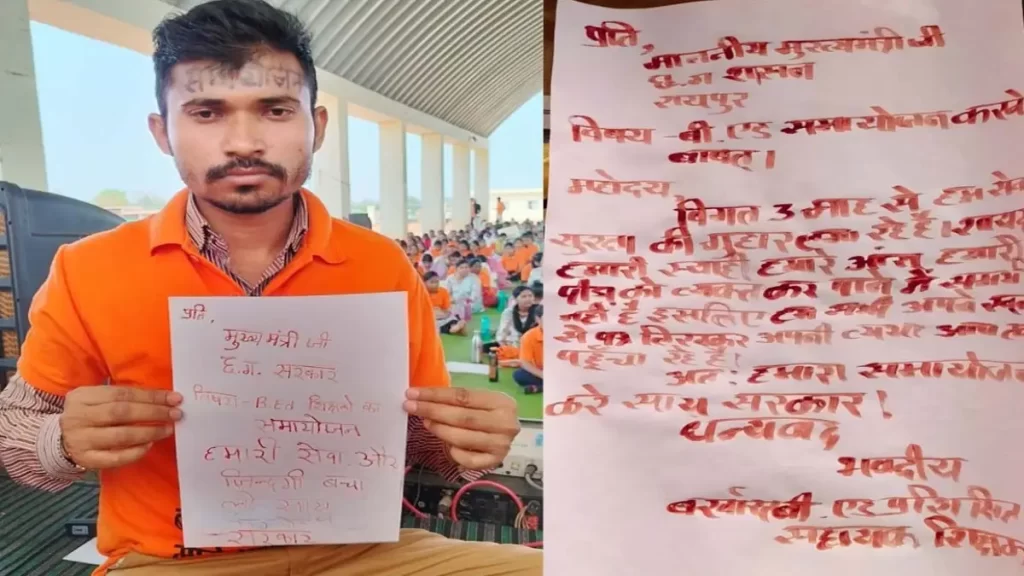 समायोजन
प्रति,
मुख्यमंत्री जी
छ.ग. सरकार
विषय- B.Ed शिक्षको का
समायोजन
हमारी सेवा और
जिन्दगी बचा
लो साय
सरकार
प्रति,
माननीय मुख्यमंत्री जी
छ.ग शासन
रायपुर
विषय - बी. एड समायोजन करने
बाबत।
महोदय
विगत 3 माह से हम सेवा
सुरक्षा की गुहार लगा रहे है।
हमारी स्याही हमारे आंसू हमारी
पीड़ा को व्यक्त कर पाने में
नही है इसलिए हम सभी अपने रक्त
से पत्र लिखकर अपनी व्यथा आप तक
पहुंचा रहे है।
अतः हमारा समायोजन
करे साय सरकार!
धन्यवाद
भवदीय
बर्खास्त बी.एड प्रशिक्षित
सहायक शिक्षक